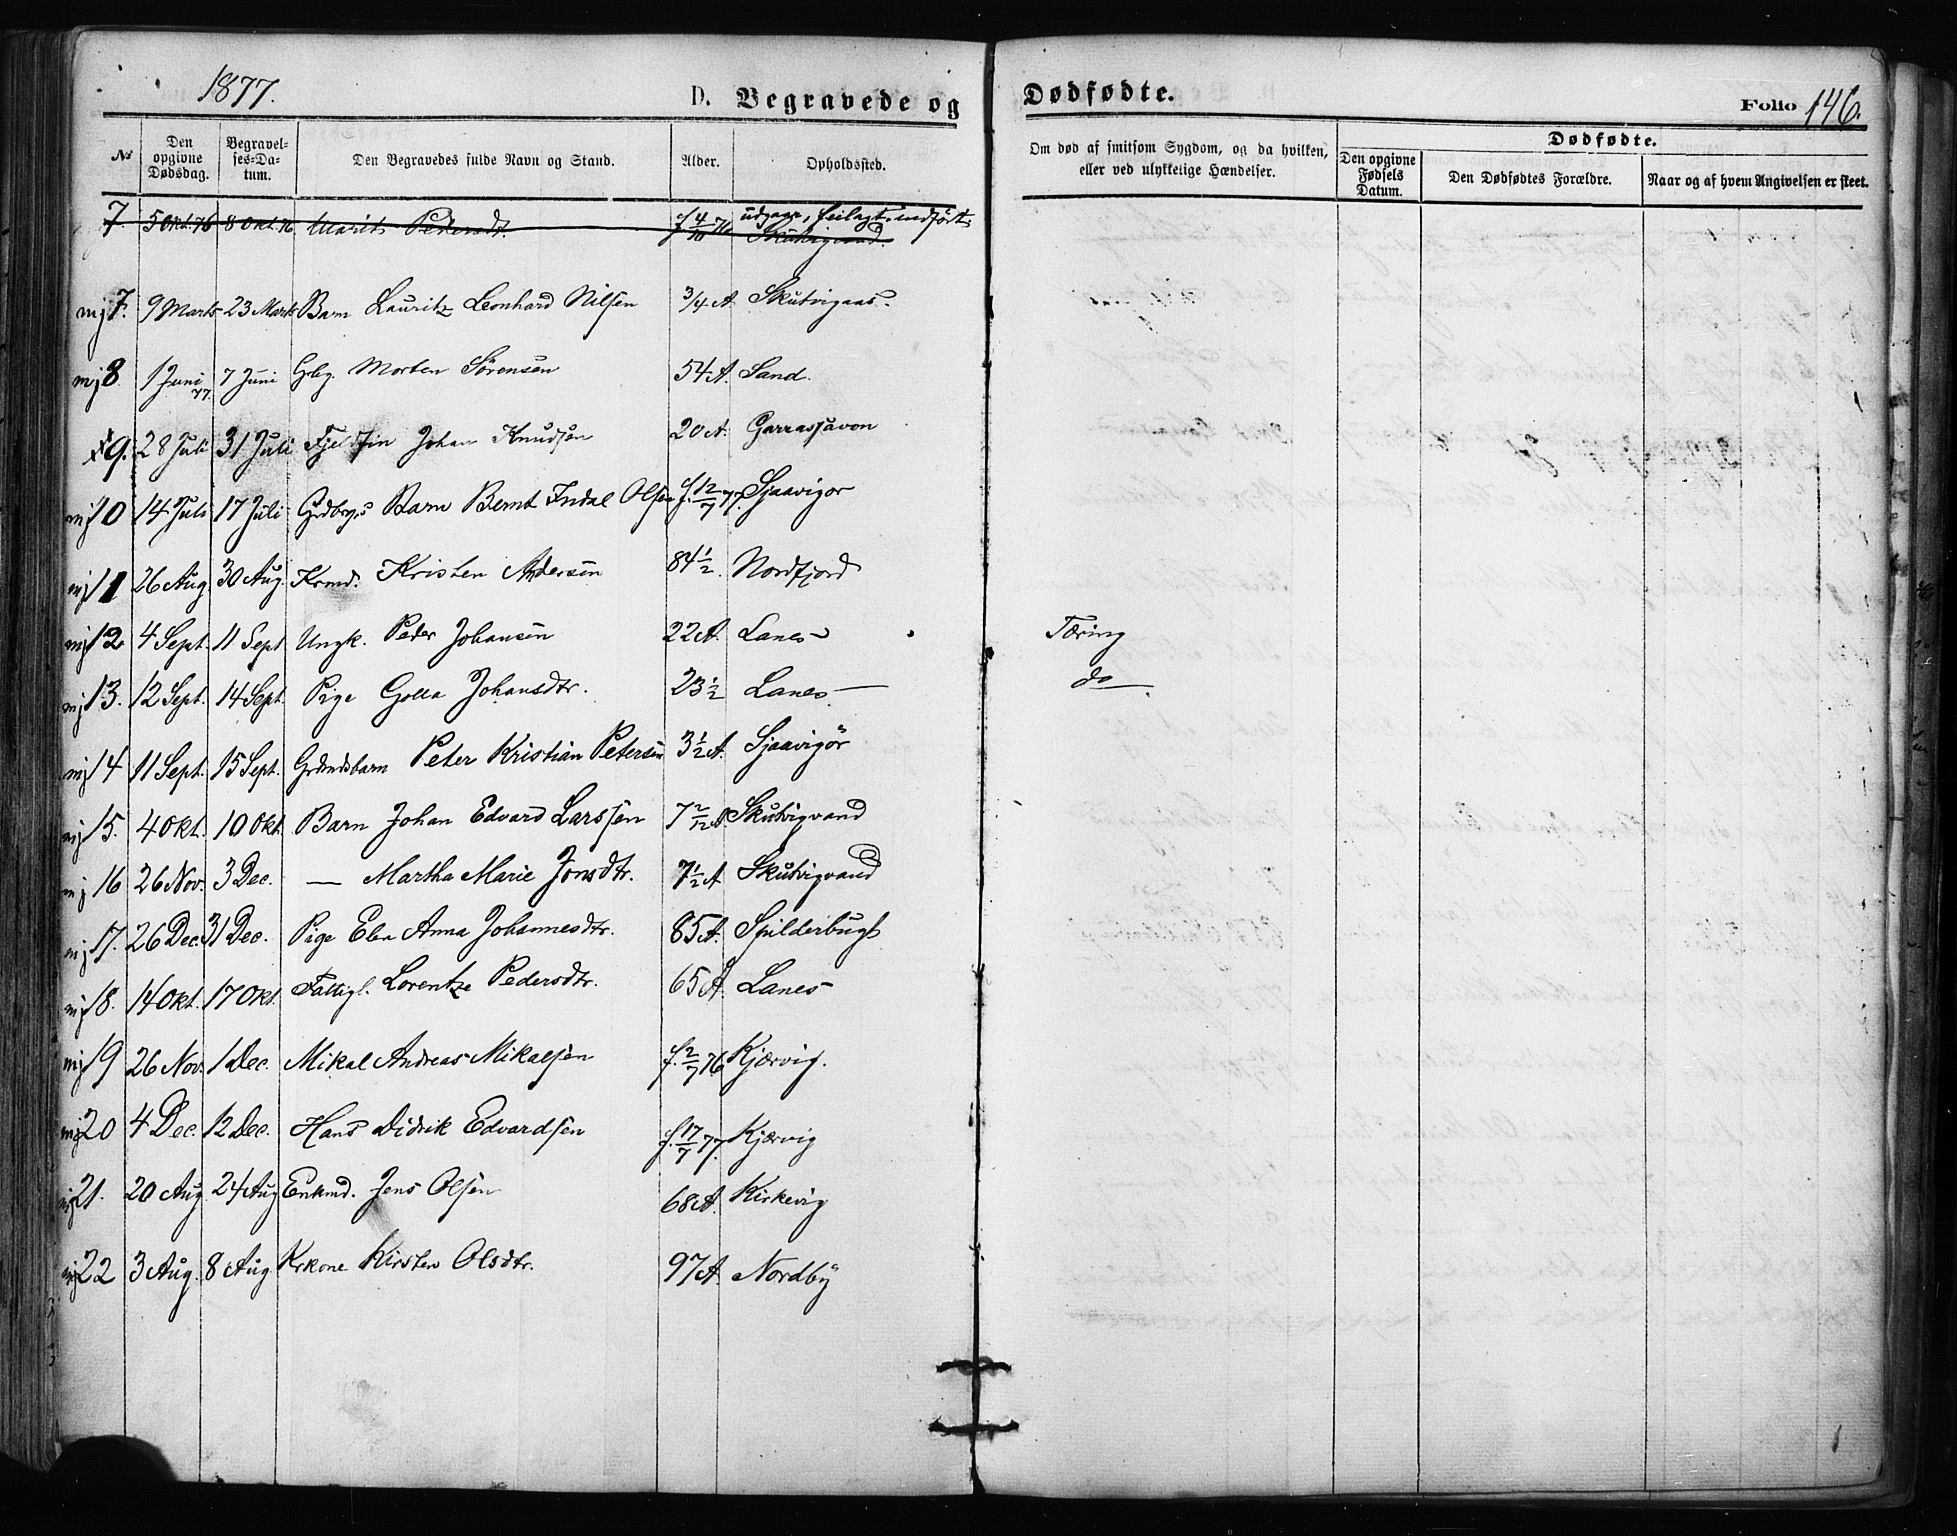 1877.
D. Begravede og Dødfødte.
Folio 146.
No
Den opgivne Dødsdag.
Begravelses-Datum.
Den Begravedes fulde Navn og Stand.
Alder.
Opholdssted.
Om død af smitsom Sygdom, og da hvilken, eller ved ulykkelige Hændelser.
Dødfødte.
Den opgivne Fødsels Datum.
Den Dødfødtes Forældre.
Naar og af hvem Angivelsen er skeet.
7. 5 Okt. 76 8 Okt. 76 Marit Pedersdt. f. 4/10 76 udgaar, feilagt. indført. Skutvigvand.
mj 7. 9 Marts 23 Marts Barn Lauritz Leonhard Nilsen 3/4 A. Skutvigaas.
mj 8 1 Juni 77. 7 Juni Gbg. Morten Sörensen 54 A. Sand.
9. 28 Juli 31 Juli Fjeldfin Johan Knudsen 20 A. Garrasjavon
mj 10 14 Juli 17 Juli Grdbrgs Barn Bernt Indal Olsen f. 12/7 77. Sjaavigor
mj 11 26 Aug. 30 Aug. Krmd. Kristen Andersen 84 1/2. Nordfjord
mj 12 4 Sept. 11 Sept Ungk. Peder Johansen 22 A. Lanes Tæring
mj 13. 12 Sept. 14 Sept. Pige Golla Johansdtr. 23 1/2 Lanes do
mj 14 11 Sept. 15 Sept. Grdmdsbarn Peter Kristian Petersen 3 1/2 A. Sjaavigör
mj 15. 4 Okt. 10 Okt. Barn Johan Edvard Larssen 7 2/12 A. Skutvigvand
mj 16 26 Nov. 3 Dec. — Martha Marie Jonsdtr. 7 1/2 A Skutvigvand
mj 17. 26 Dec. 31 Dec. Pige Elen Anna Johannesdtr. 85 A. Spilderbugt
mj 18. 14 Okt. 17 Okt. Fattigl. Lorentze Pedersdtr. 65 A. Lanes
mj 19 26 Nov. 1 Dec. Mikal Andreas Mikalsen f. 2/7 76 Kjærvig.
mj 20 4 Dec. 12 Dec. Hans Didrik Edvardsen f. 17/7 77. Kjærvig
mj 21. 20 Aug. 24 Aug Enkmd. Jens Olsen 68 A. Kirkevig
mj 22 3 Aug. 8 Aug Krkone Kirsten Olsdtr. 97 A. Nordby